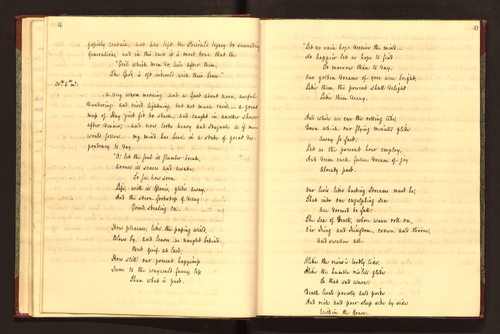 26
"Evil which men do, lives after them,
The Good, is oft interred with their bones."
A very warm morning and a
thunderings and vivid lightning, but not much rain. a great
my mind has been in a state of great de-
pendency to day.
"O! let the soul its slumber break,
Arouse its senses and awake,
To see how soon
Life, with its glories, glides away,
And the stern footstep of decay
Comes stealing on.
How pleasure, like the passing wind,
Blows by, and leaves us nought behind,
But grief at last;
How still our present happiness
Seems to the wayward fancy less
Than what is past.
27
"Let no vain hope deceive the mind—
No happier let us hope to find
To morrow than to day.
Our golden dreams of yore were bright,
Like them the present shall delight
Like them decay.
And while we eye the rolling tide,
Down which our flying minutes glide
Away so fast;
Let us the present hour employ,
And deem each future dream of joy
Already past.
Our lives like hasting streams must be,
That into one engulphing sea
Are doomed to fall.
The Sea of Death, whose waves roll on,
O'er King and Kingdom, crown and throne,
And swallow all.
Alike the river's lordly tide,
Alike the humble rivlets glide
To that sad wave;
Death levels poverty and pride
And rich and poor sleep side by side
Within the Grave.